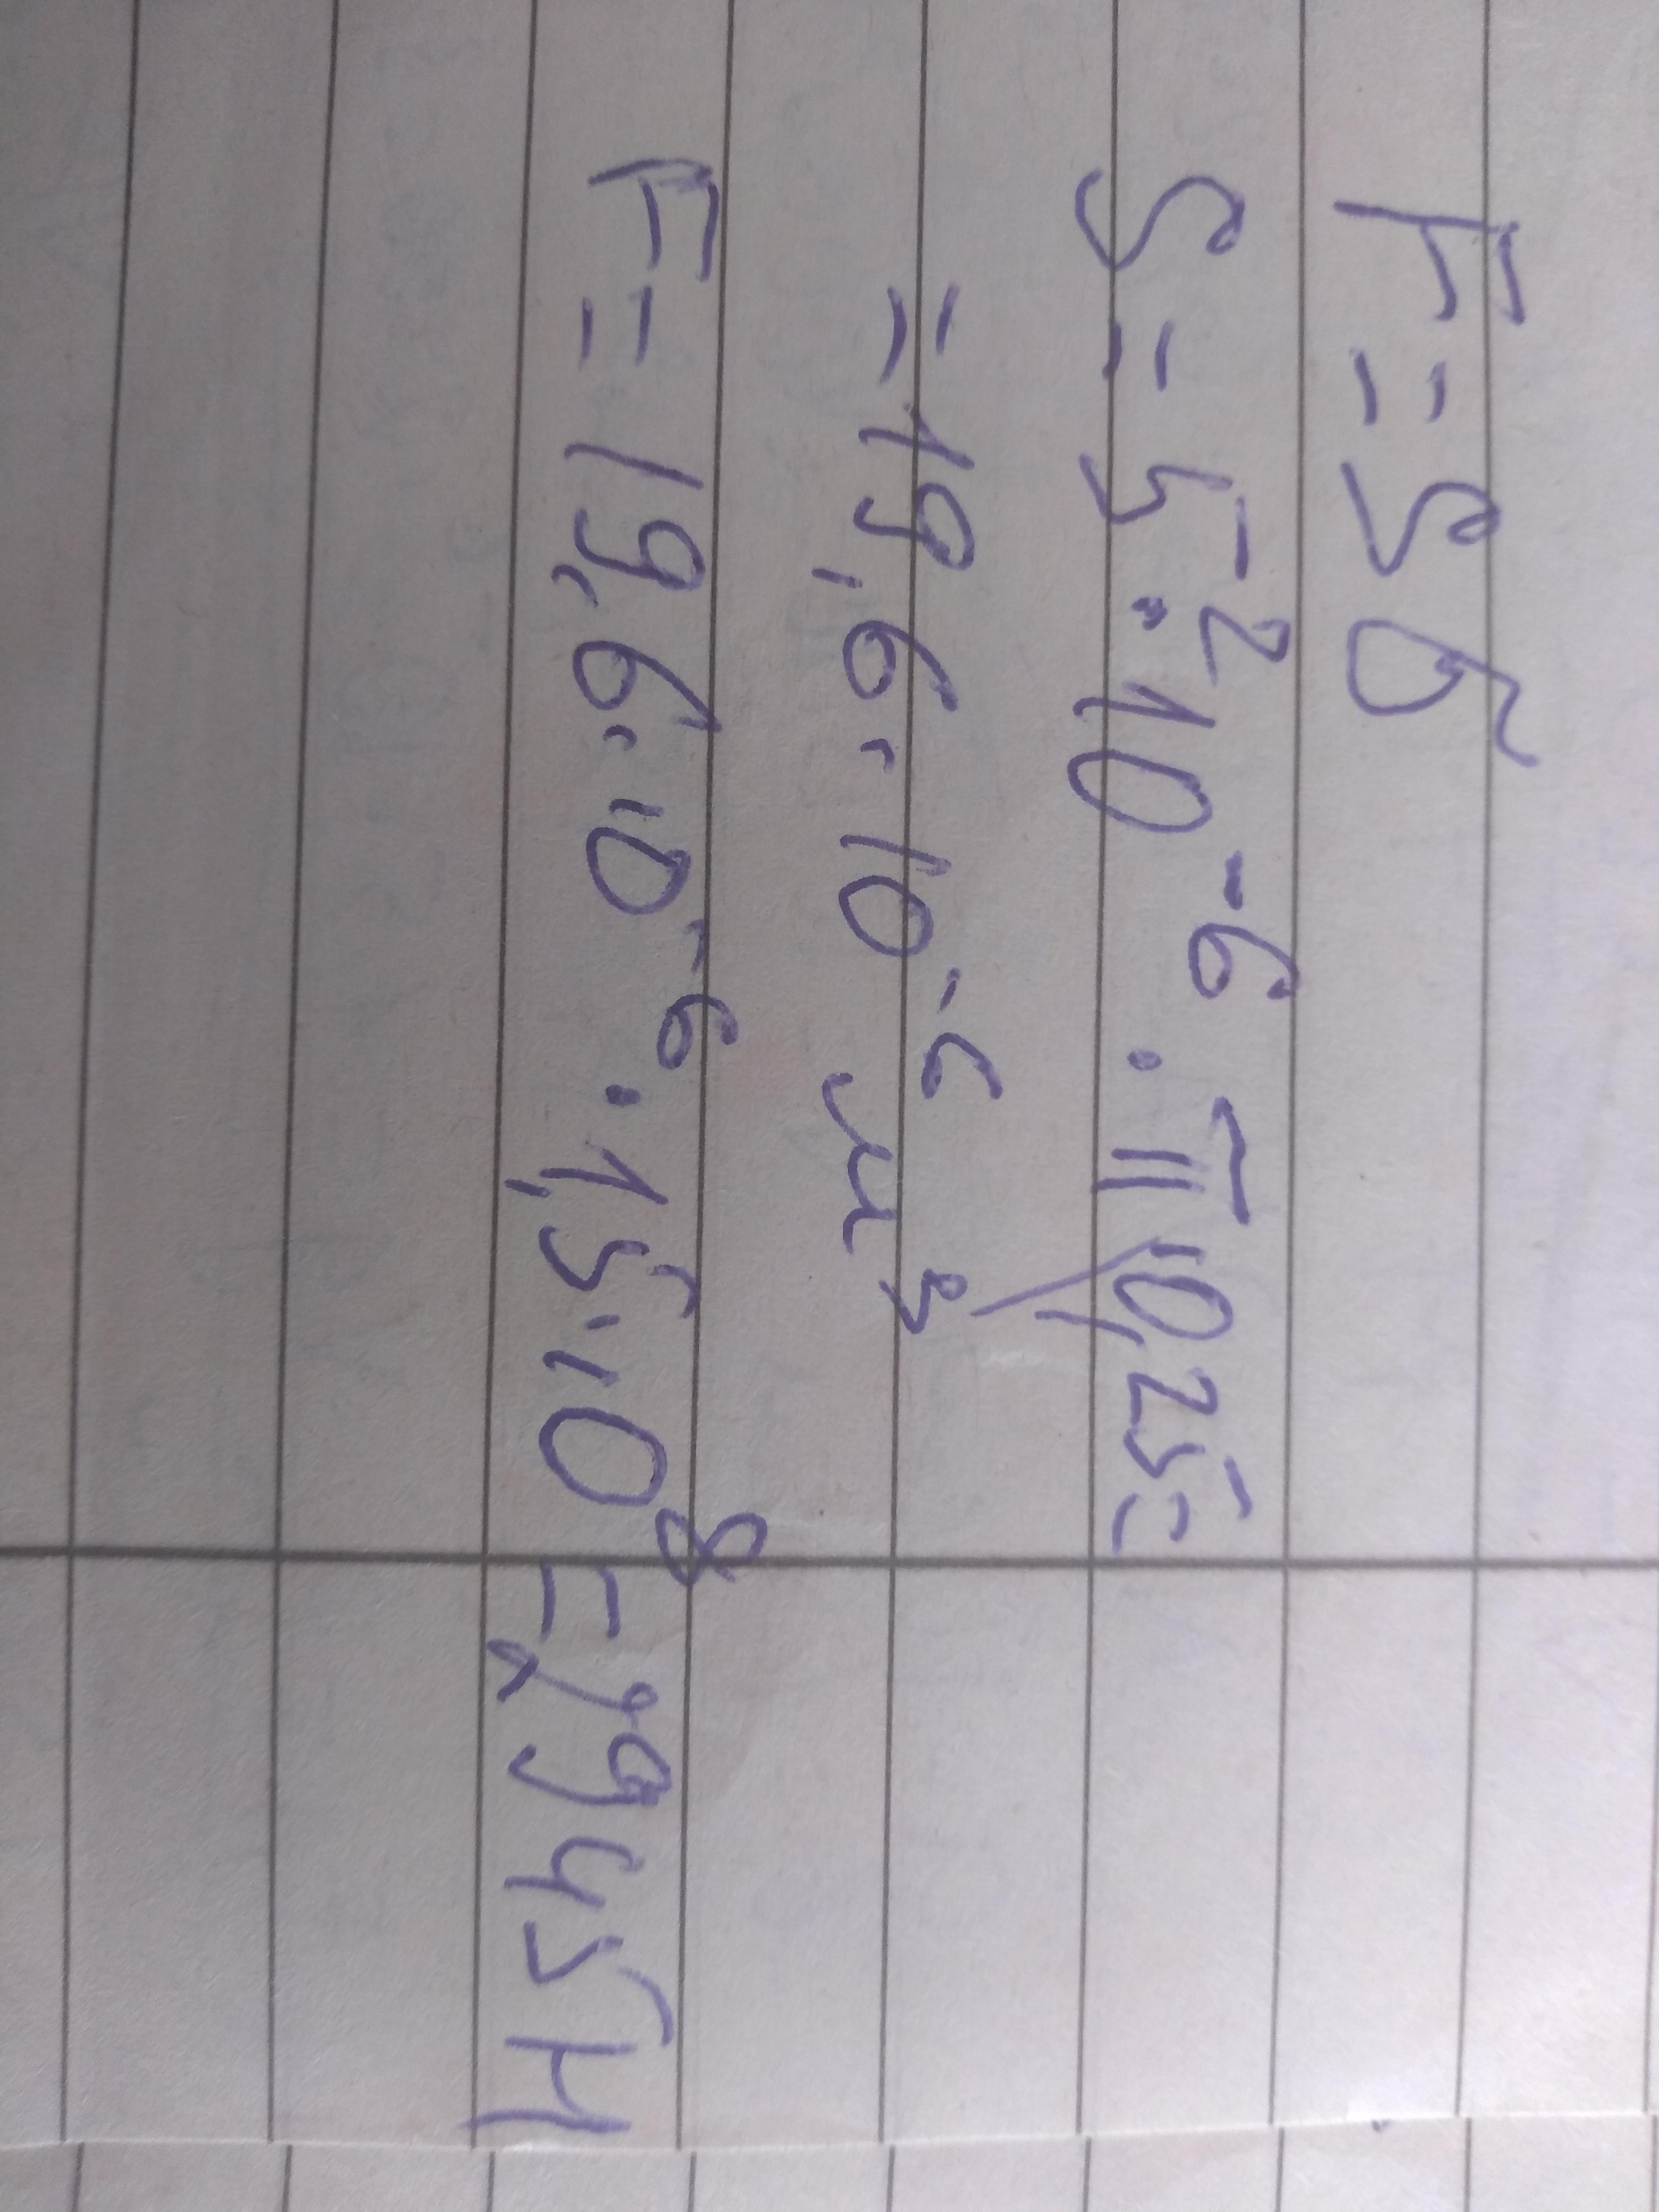 F = Sσ
S = 5² · 10⁻⁶ · π · 0,25 =
= 19,6 · 10⁻⁶ м²
F = 19,6 · 10⁻⁶ · 1,5 · 10⁸ = 2945 Н